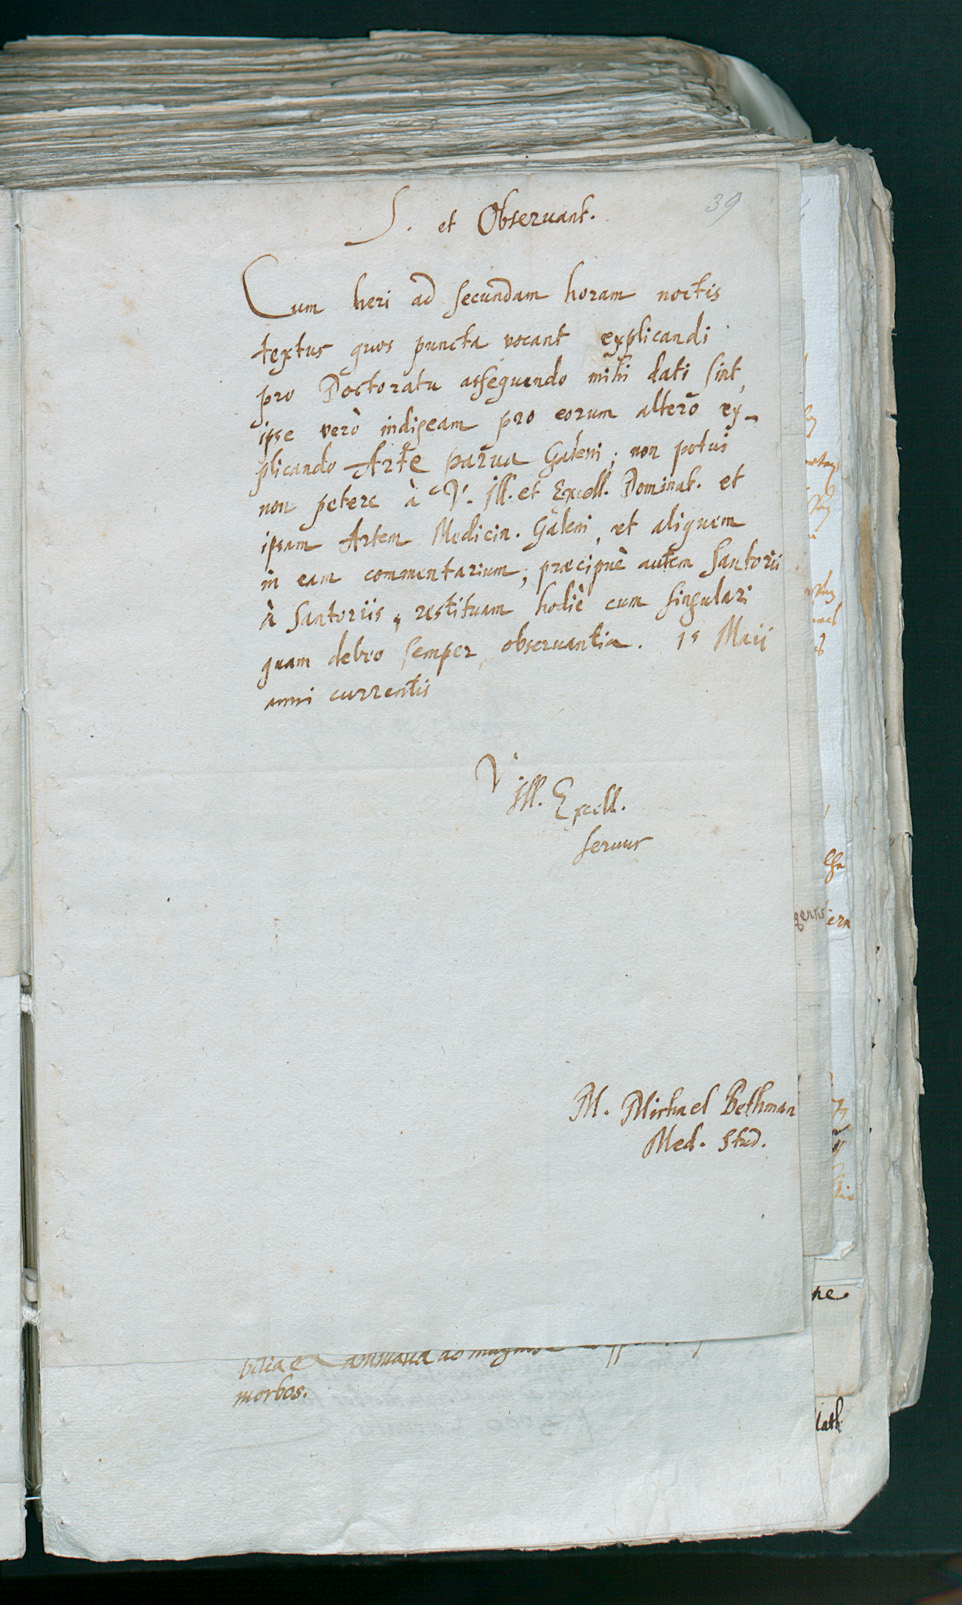 39
S. et Observant.
Cum heri ad secundam horam noctis
textus quos puncta vocant explicandi
pro Doctoratu assequendo mihi dati sint,
ipse verò indigeam pro eorum altero ex-
plicando Arte parva Galeni; non potui
non petere à V. Ill. et Excell. Dominat. et
ipsam Artem Medicin. Galeni, et aliquem
in eam commentarium, præcipuè autem Santorii
à Santoriis, restituam hodiè cum singulari
quam debeo semper, observantia. 15 Maii
anni currentis
V
Ill. Excell.
servus
M. Michael Bethman
Med. Stud.
morbos.